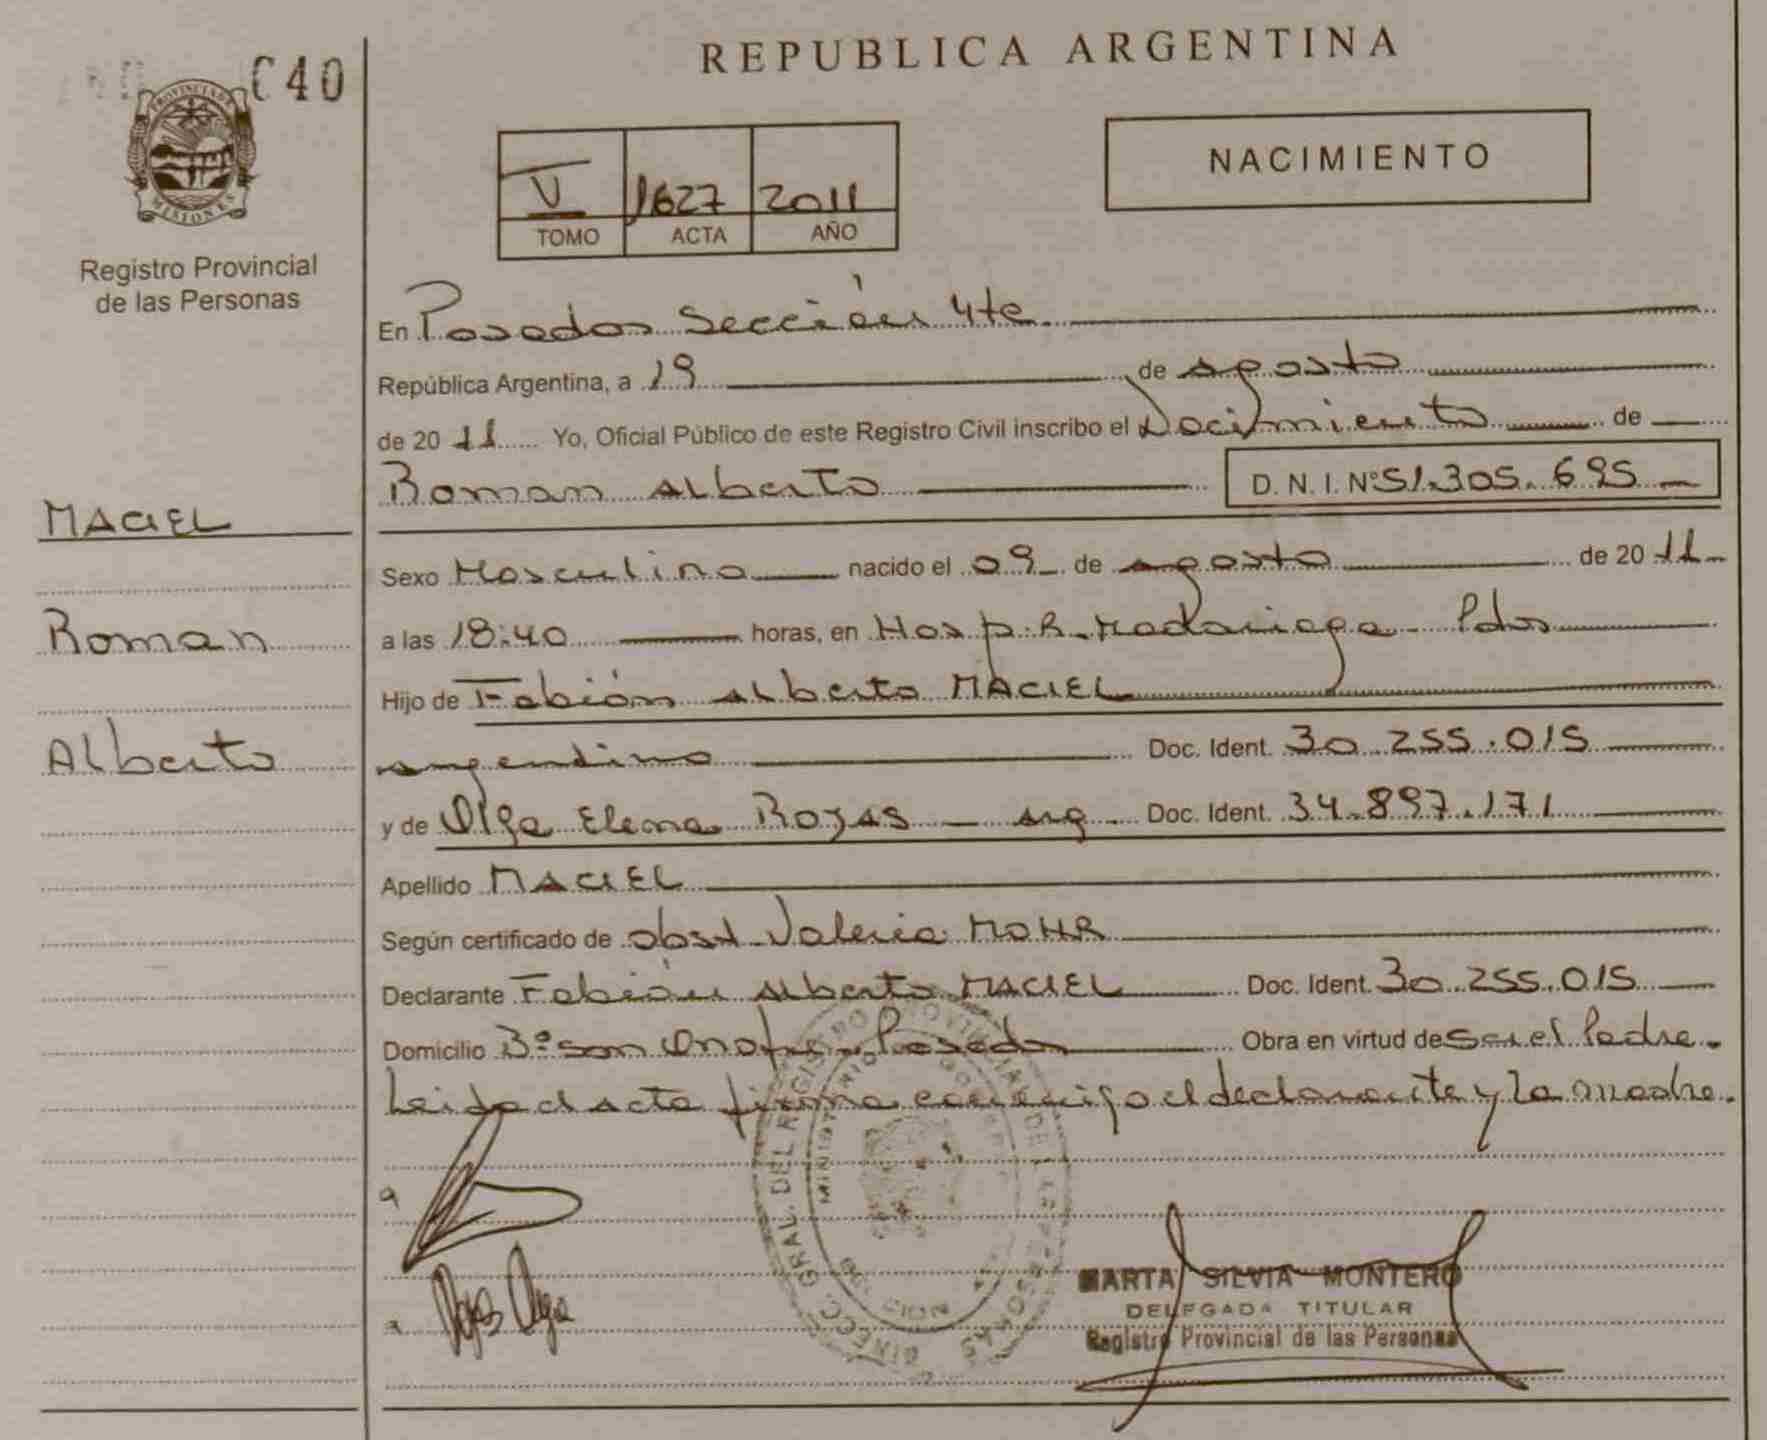 C40
PROVINCIA DE
MISIONES
Registro Provincial
de las Personas
MACIEL
Roman
Alberto
REPUBLICA ARGENTINA
V 1627 2011
TOMO ACTA AÑO
NACIMIENTO
En Posadas Sección 4ta
República Argentina, a 19 de agosto
de 20 11 Yo, Oficial Público de este Registro Civil inscribo el Nacimiento de
Roman Alberto D. N. I. Nº 51.305.695
Sexo Masculino nacido el 09 de agosto de 20 11
a las 18:40 horas, en Hosp. R. Madariaga - Pdas
Hijo de Fabián Alberto MACIEL
argentino Doc. Ident. 30.255.015
y de Olga Elena ROJAS - arg Doc. Ident. 34.897.171
Apellido MACIEL
Según certificado de obst. Valeria MOHR
Declarante Fabián Alberto MACIEL Doc. Ident. 30.255.015
Domicilio Bº San Onofre - Posadas Obra en virtud de ser el Padre.
Leida el acta firma conmigo el declarante y la madre.
Rojas Olga
DIRECC. GRAL. DEL REGISTRO PROVINCIAL DE LAS PERSONAS
MINISTERIO GOBIER
MARTA SILVIA MONTERO
DELEGADA TITULAR
Registro Provincial de las Personas